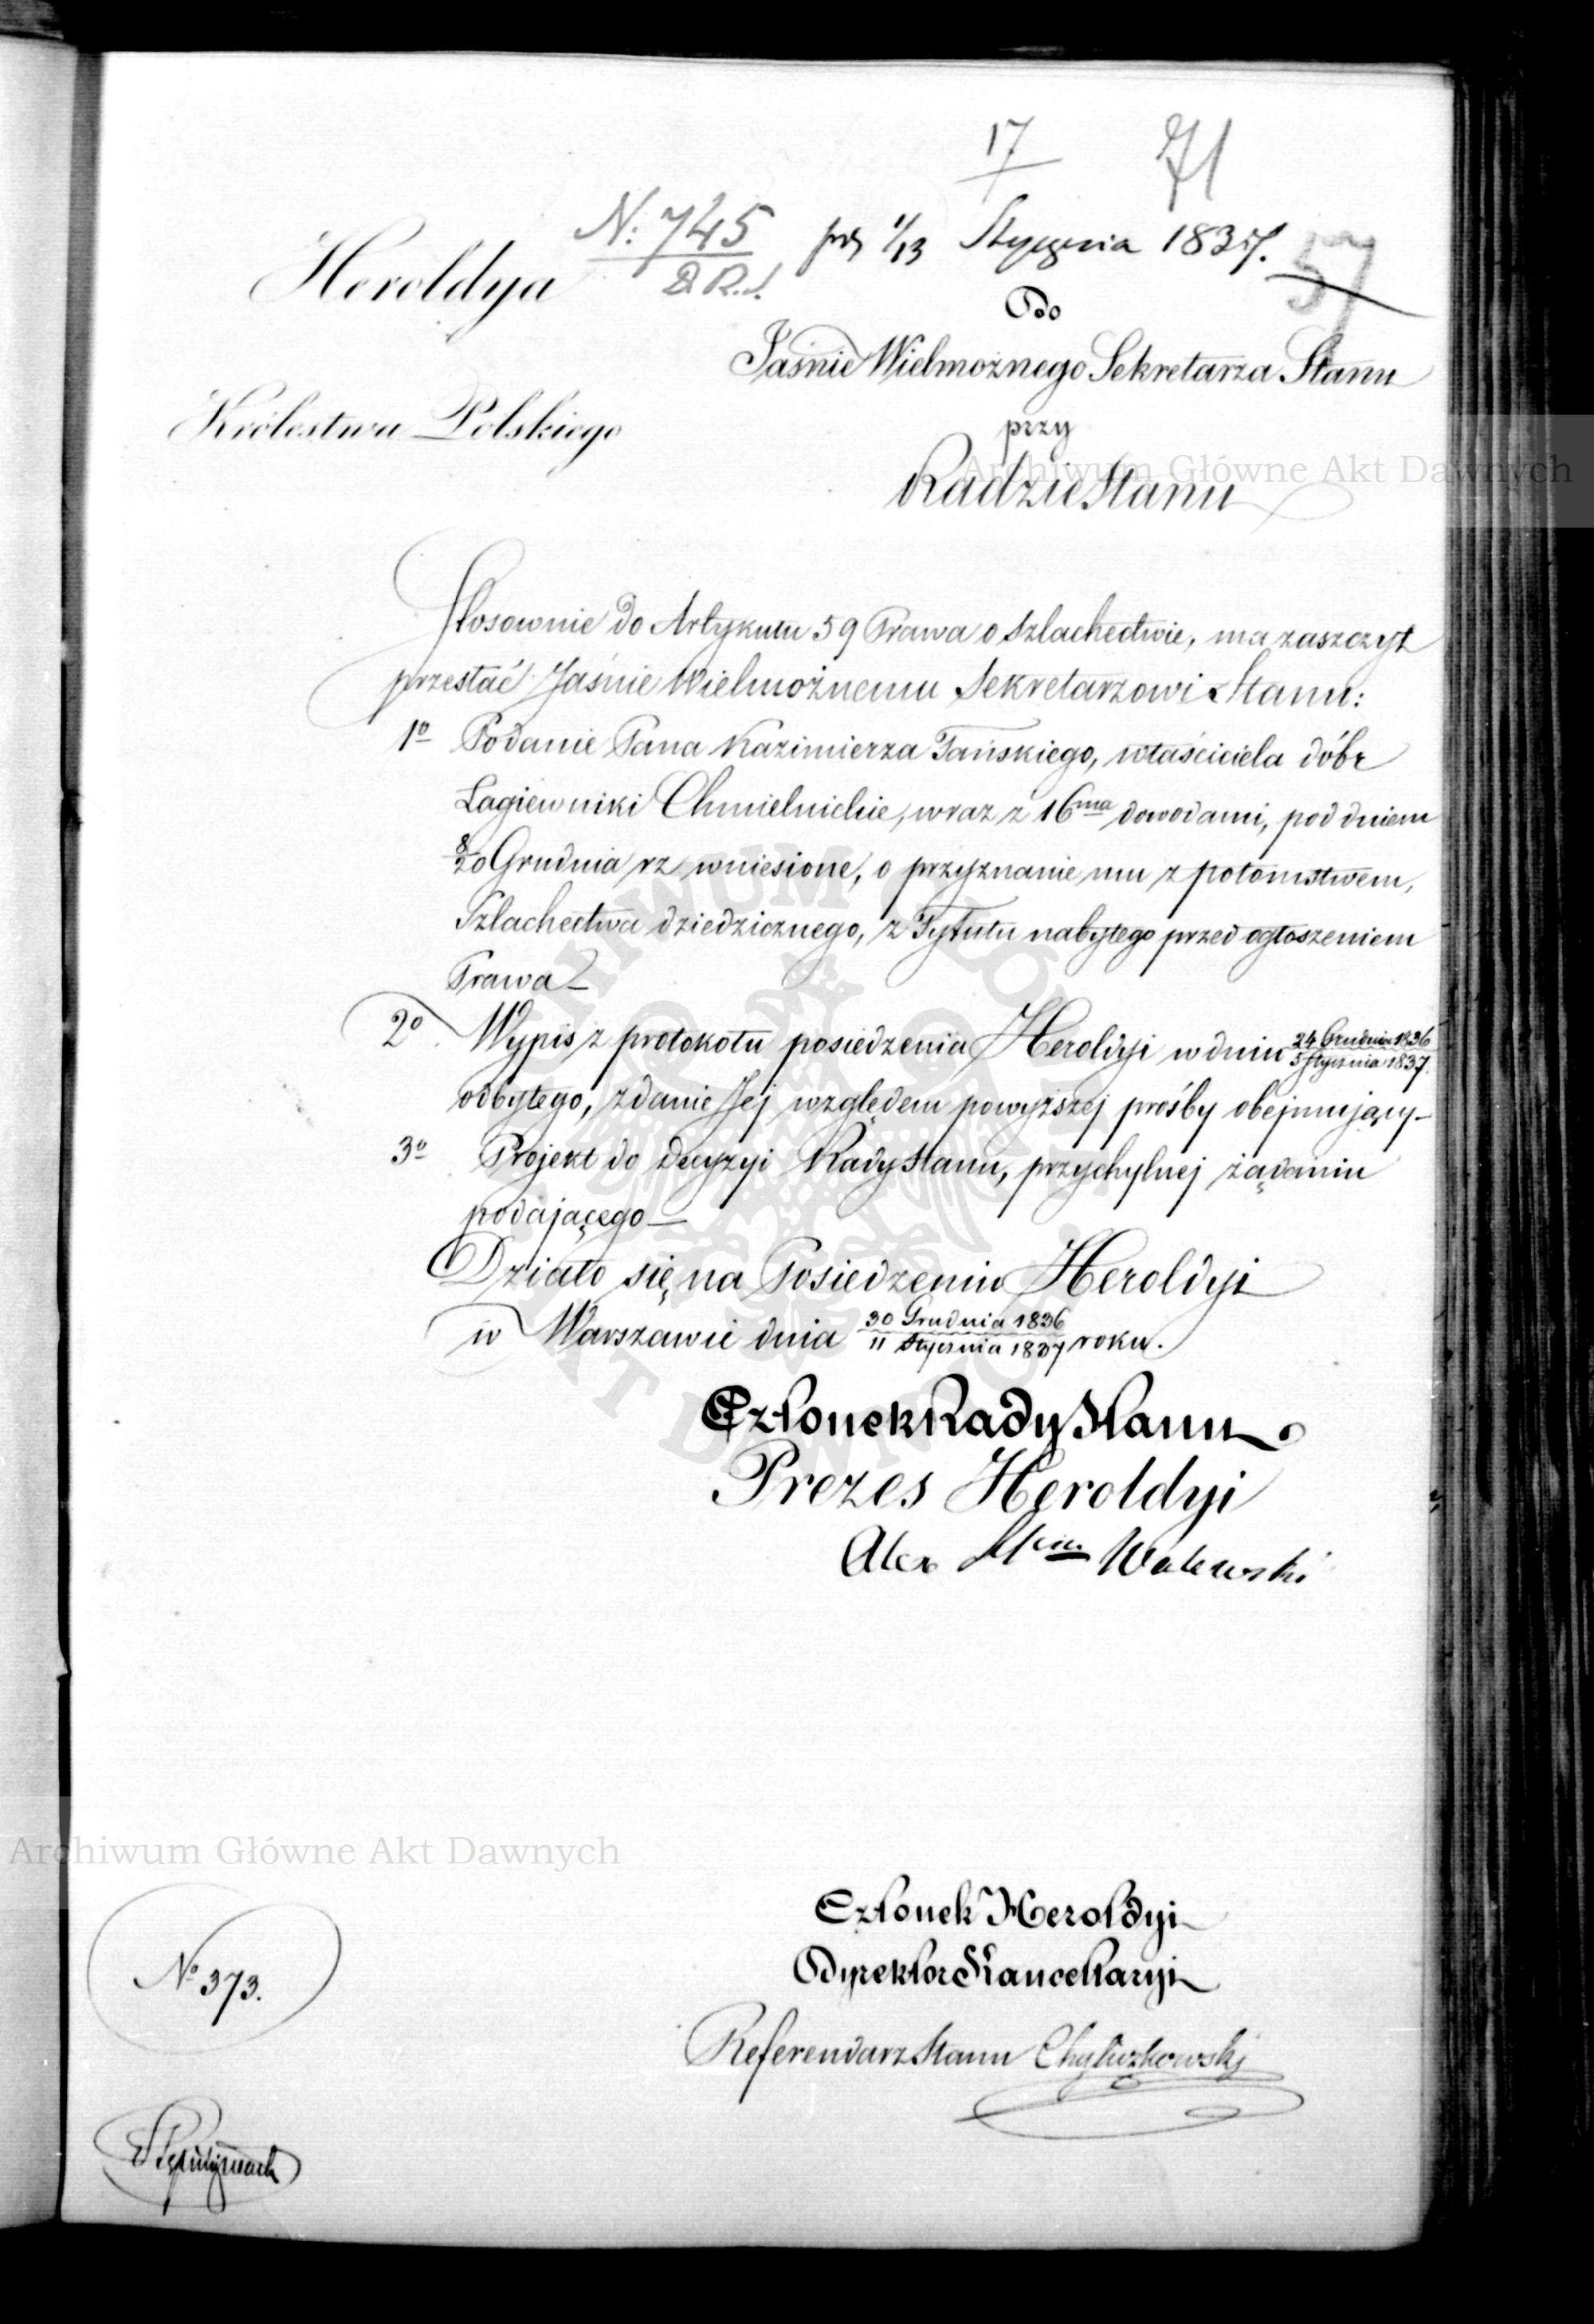 17
71
N: 745
D.R.S.
pr. 1/13 Stycznia 1837.
57
Heroldya
Do
Jaśnie Wielmożnego Sekretarza Stanu
Królestwa Polskiego
przy
Radzie Stanu
Archiwum Główne Akt Dawnych
Stosownie do Artykułu 59 Prawa o Szlachectwie, ma zaszczyt
przesłać Jaśnie Wielmożnemu Sekretarzowi Stanu:
1o Podanie Pana Kazimierza Tańskiego, właściciela dóbr
Łagiewniki Chmielnickie, wraz z 16ma dowodami, pod dniem
8/20 Grudnia rz wniesione, o przyznanie mu z potomstwem,
Szlachectwa dziedzicznego, z Tytułu nabytego przed ogłoszeniem
Prawa –
2o Wypis z protokołu posiedzenia Heroldyi w dniu 24 Grudnia 1836 / 5 Stycznia 1837.
odbytego, zdanie Jej względem powyższej prośby obejmujący –
3o Projekt do decyzyi Rady Stanu, przychylnej żądaniu
podającego –
Działo się na Posiedzeniu Heroldyi
w Warszawie dnia 30 Grudnia 1836 / 11 Stycznia 1837 roku.
Członek Rady Stanu
Prezes Heroldyi
Alex Walewski
Archiwum Główne Akt Dawnych
Członek Heroldyi
Dyrektor Kancellaryi
No 373.
Referendarz Stanu Chyliczkowski